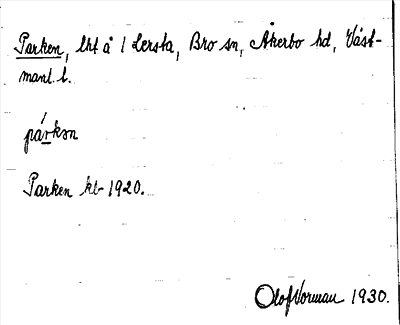 Parken, lht å 1 Lersta, Bro sn, Åkerbo hd, Väst-
manl. l.
párkən
Parken kb 1920.
Olof Norman 1930.